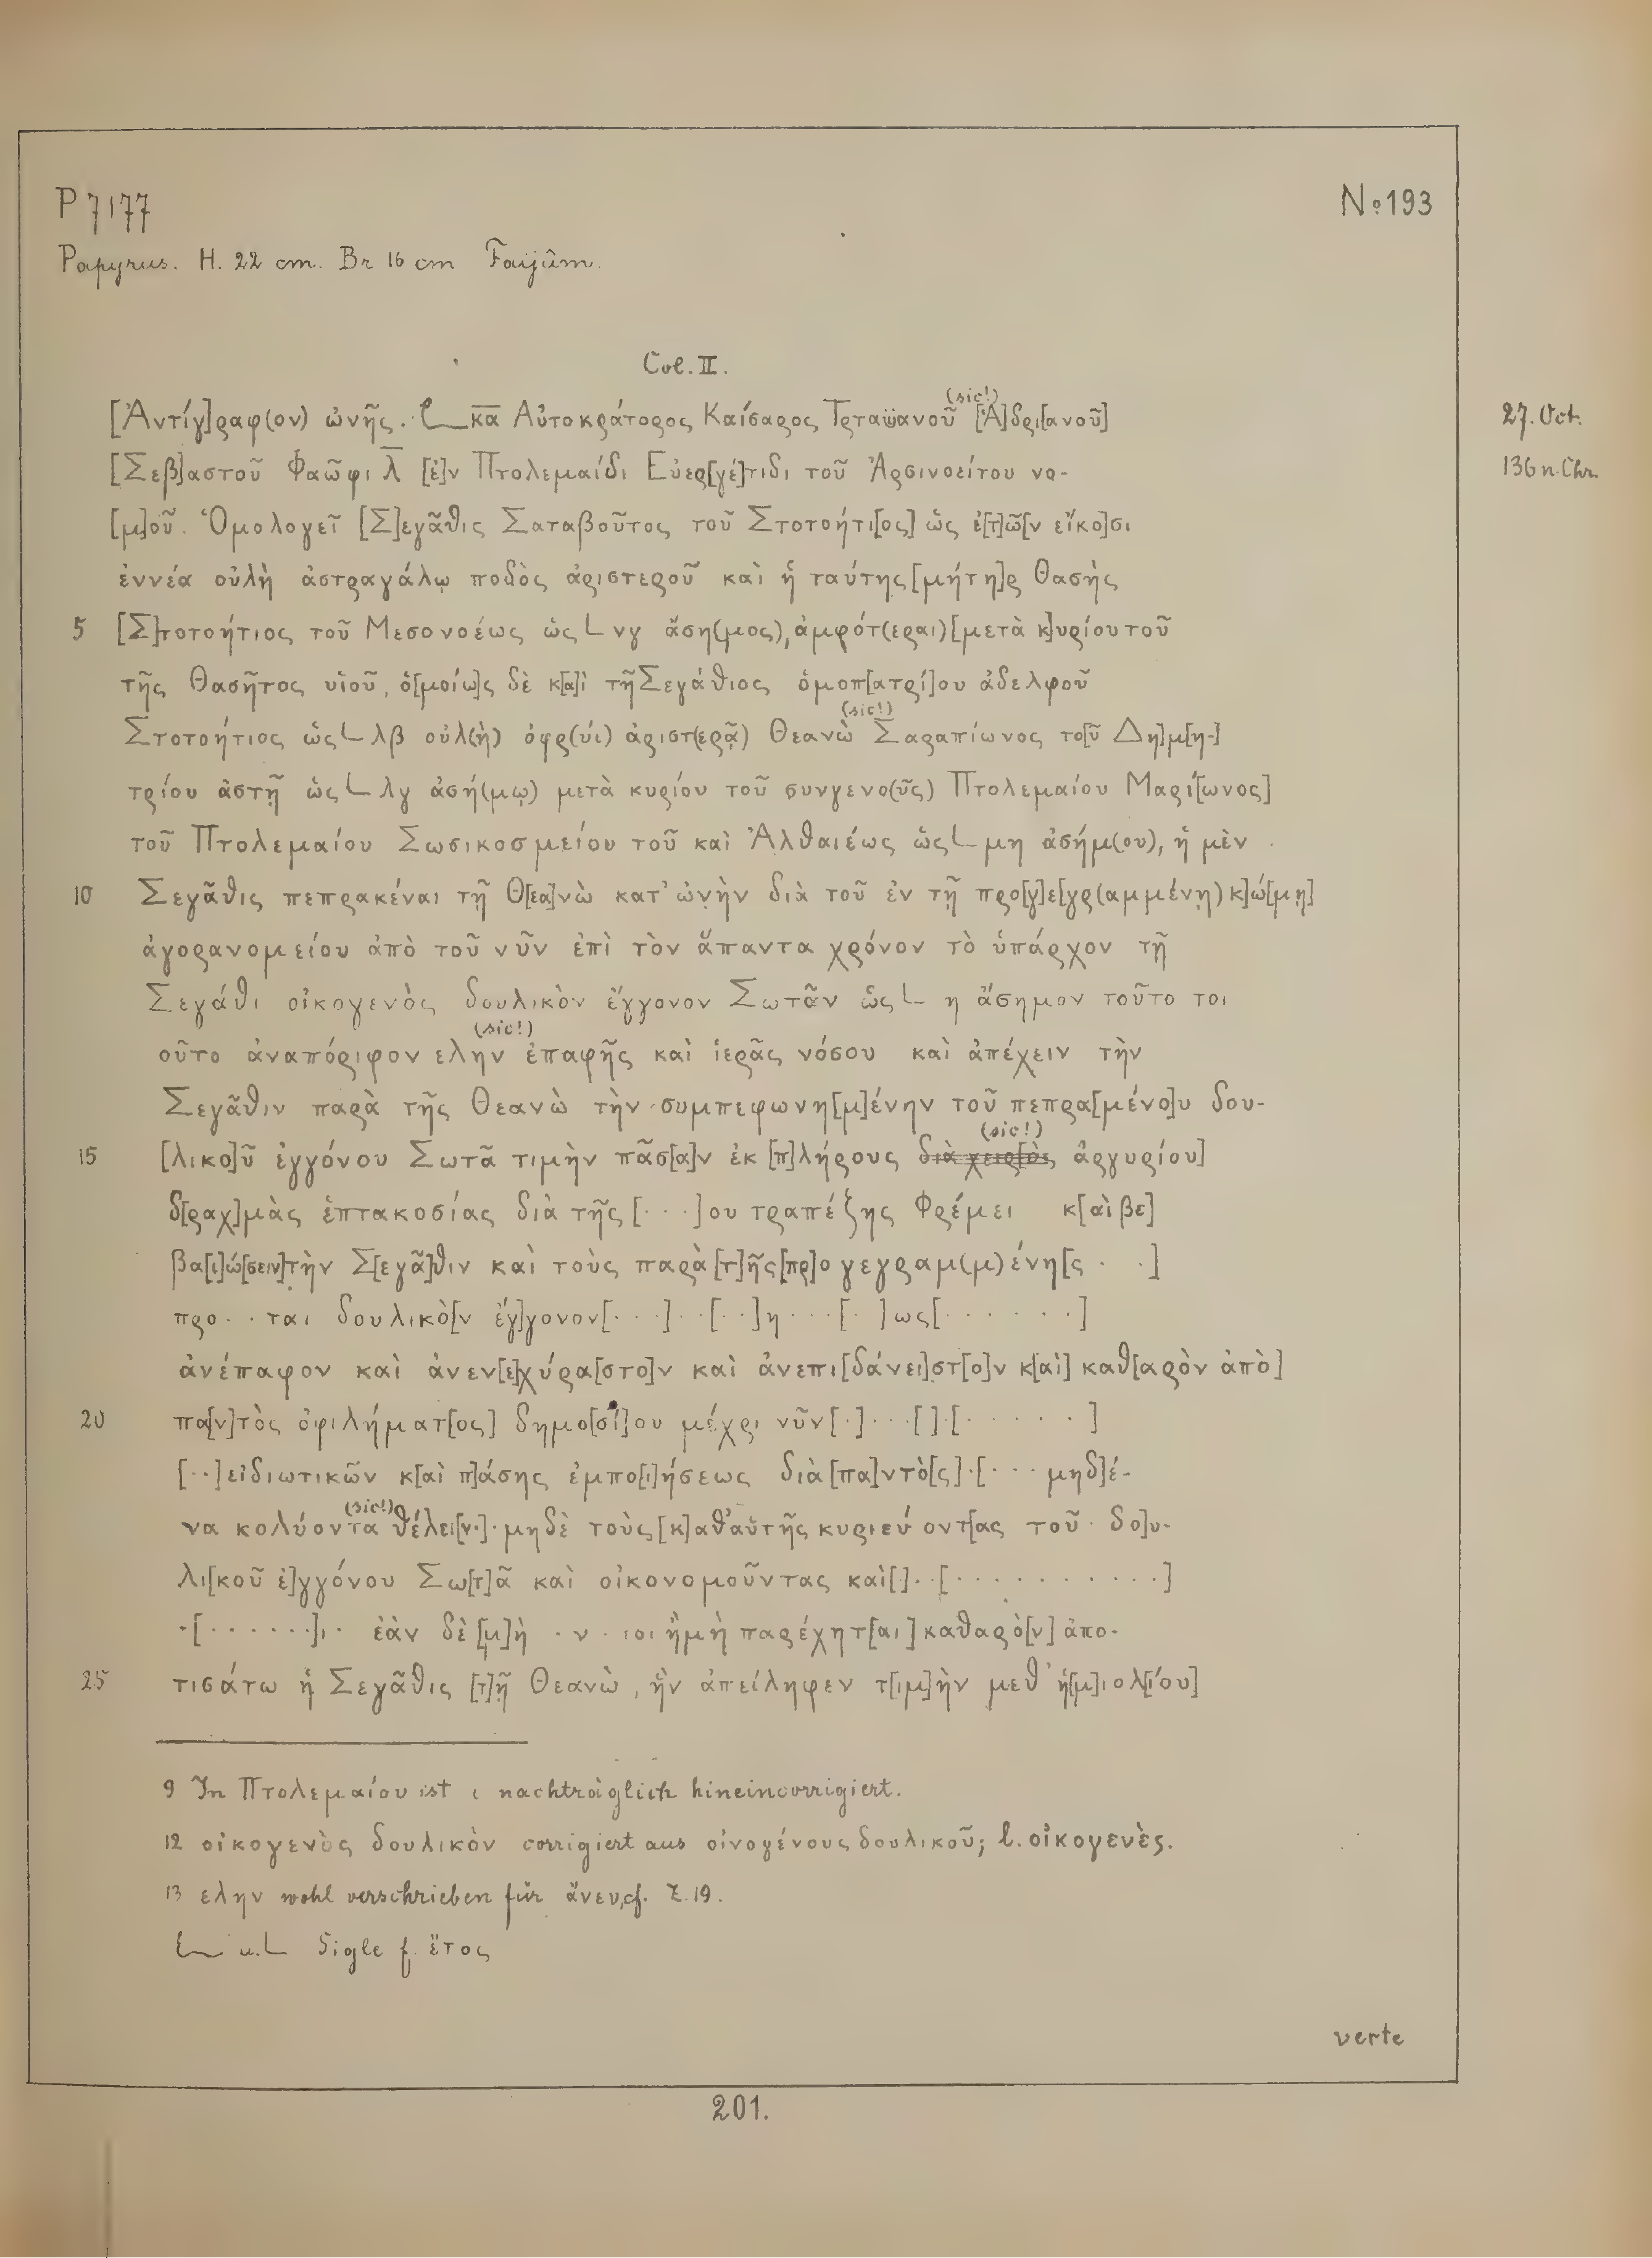 P 7177
No 193
Papyrus. H. 22 cm. Br 16 cm Faijûm.
Col. II.
(sic!)
[Ἀντίγ]ραφ(ον) ὠνῆς. L κα Αὐτοκράτορος Καίσαρος Τρταϊανοῦ [Ἁ]δρι[ανοῦ]
27. Oct.
[Σεβ]αστοῦ Φαῶφι λ [ἐ]ν Πτολεμαίδι Εὐερ[γέ]τιδι τοῦ Ἀρσινοείτου νο-
136 n. Chr.
[μ]οῦ. Ὁμολογεῖ [Σ]εγᾶθις Σαταβοῦτος τοῦ Στοτοήτι[ος] ὡς ἐ[τ]ῶ[ν εἴκο]σι
ἐννέα οὐλὴ ἀστραγάλῳ ποδὸς ἀριστεροῦ καὶ ἡ ταύτης [μήτη]ρ Θασῆς
5 [Σ]τοτοήτιος τοῦ Μεσονοέως ὡς L νγ ἄση(μος), ἀμφότ(εραι) [μετὰ κ]υρίου τοῦ
τῆς Θασῆτος υἱοῦ, ὁ[μοίω]ς δὲ κ[α]ὶ τῆ Σεγάθιος ὁμοπ[ατρί]ου ἀδελφοῦ
(sic!)
Στοτοήτιος ὡς L λβ οὐλ(ὴ) ὀφρ(ύι) ἀριστ(ερᾷ) Θεανὼ Σαραπίωνος το[ῦ Δη]μ[η-]
τρίου ἀστῇ ὡς L λγ ἀσή(μῳ) μετὰ κυρίου τοῦ συνγενο(ῦς) Πτολεμαίου Μαρί[ωνος]
τοῦ Πτολεμαίου Σωσικοσμείου τοῦ καὶ Ἀλθαιέως ὡς L μη ἀσήμ(ου), ἡ μὲν
10 Σεγᾶθις πεπρακέναι τῇ Θ[εα]νὼ κατ' ὠνὴν διὰ τοῦ ἐν τῇ προ[γ]ε[γρ(αμμένῃ) κ]ώ[μῃ]
ἀγορανομείου ἀπὸ τοῦ νῦν ἐπὶ τὸν ἅπαντα χρόνον τὸ ὑπάρχον τῇ
Σεγάθι οἰκογενὸς δουλικὸν ἔγγονον Σωτᾶν ὡς L η ἄσημον τοῦτο τοι
(sic!)
οῦτο ἀναπόριφον ελην ἐπαφῆς καὶ ἱερᾶς νόσου καὶ ἀπέχειν τὴν
Σεγᾶθιν παρὰ τῆς Θεανὼ τὴν συμπεφωνη[μ]ένην τοῦ πεπρα[μένο]υ δου-
(sic!)
15 [λικο]ῦ ἐγγόνου Σωτᾶ τιμὴν πᾶσ[α]ν ἐκ [π]λήρους διὰ χειρ[ὸς ἀργυρίου]
δ[ραχ]μὰς ἑπτακοσίας διὰ τῆς [· · ·]ου τραπέζης Φρέμει κ[αὶ βε]
βα[ι]ώ[σειν] τὴν Σ[εγᾶ]θιν καὶ τοὺς παρὰ [τ]ῆς [πρ]ογεγραμ(μ)ένη[ς · ·]
προ · · ται δουλικὸ[ν ἔγ]γονον[· · ·] · · [· ·]η · · · [· ]ως[· · · · · ·]
ἀνέπαφον καὶ ἀνεν[ε]χύρα[στο]ν καὶ ἀνεπι[δάνει]στ[ο]ν κ[αὶ] καθ[αρὸν ἀπὸ]
20 πα[ν]τὸς ὀφιλήματ[ος] δημο[σί]ου μέχρι νῦν[·] · · · [ ] [· · · · · ·]
[· ·]ειδιωτικῶν κ[αὶ π]άσης ἐμπο[ι]ήσεως διὰ [πα]ντὸ[ς] · [· · · μηδ]έ-
(sic!)
να κολύοντα θέλει[ν ·] · μηδὲ τοὺς [κ]αθ' αὐτῆς κυριεύοντ[ας τοῦ δο]υ-
λι[κοῦ ἐ]γγόνου Σω[τ]ᾶ καὶ οἰκονομοῦντας καὶ[ ] · · [· · · · · · · · · ·]
· [· · · · · ·]ι · ἐὰν δὲ [μ]ὴ · ν · ιοι ἢ μὴ παρέχητ[αι] καθαρὸ[ν] ἀπο-
25 τισάτω ἡ Σεγᾶθις [τ]ῇ Θεανὼ, ἣν ἀπείληφεν τ[ιμ]ὴν μεθ' ἡ[μ]ιολ[ίου]
9 In Πτολεμαίου ist ι nachträglich hineincorrigiert.
12 οἰκογενὸς δουλικὸν corrigiert aus οἰνογένους δουλικοῦ; l. οἰκογενὲς.
13 ελην wohl verschrieben für ἄνευ, cf. Z. 19.
L u. L Sigle f. ἔτος
verte
201.